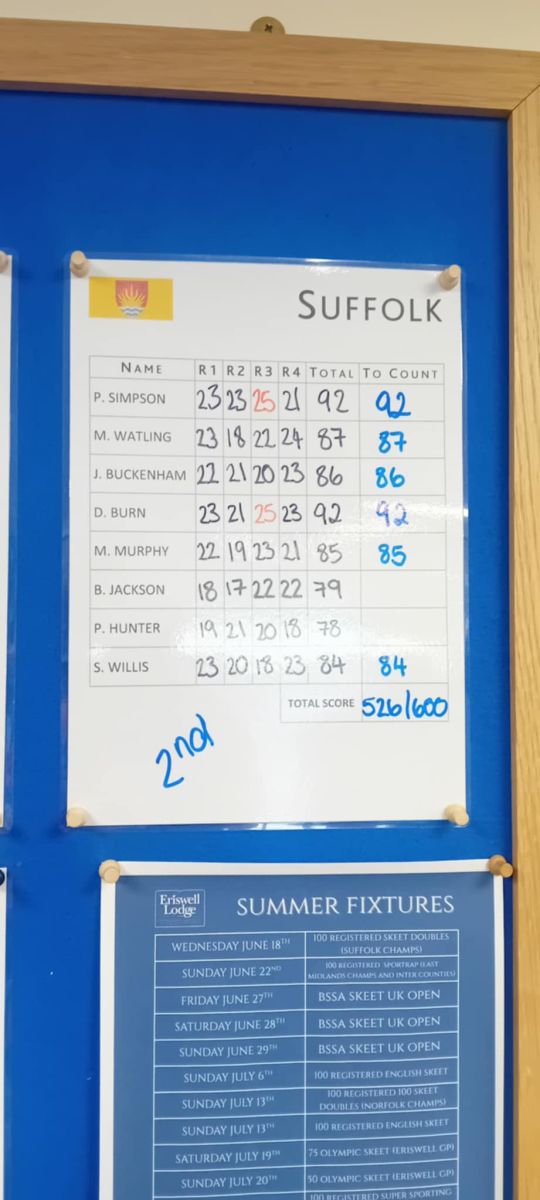 SUFFOLK
NAME R1 R2 R3 R4 TOTAL TO COUNT
P. SIMPSON 23 23 25 21 92 92
M. WATLING 23 18 22 24 87 87
J. BUCKENHAM 22 21 20 23 86 86
D. BURN 23 21 25 23 92 92
M. MURPHY 22 19 23 21 85 85
B. JACKSON 18 17 22 22 79
P. HUNTER 19 21 20 18 78
S. WILLIS 23 20 18 23 84 84
TOTAL SCORE 526/600
2nd
Eriswell
Lodge
SUMMER FIXTURES
WEDNESDAY JUNE 18TH 100 REGISTERED SKEET DOUBLES
(SUFFOLK CHAMPS)
SUNDAY JUNE 22ND 100 REGISTERED SPORTRAP (EAST
MIDLANDS CHAMPS AND INTER COUNTIES)
FRIDAY JUNE 27TH BSSA SKEET UK OPEN
SATURDAY JUNE 28TH BSSA SKEET UK OPEN
SUNDAY JUNE 29TH BSSA SKEET UK OPEN
SUNDAY JULY 6TH 100 REGISTERED ENGLISH SKEET
SUNDAY JULY 13TH 100 REGISTERED 100 SKEET
DOUBLES (NORFOLK CHAMPS)
SUNDAY JULY 13TH 100 REGISTERED ENGLISH SKEET
SATURDAY JULY 19TH 75 OLYMPIC SKEET (ERISWELL GP)
SUNDAY JULY 20TH 50 OLYMPIC SKEET (ERISWELL GP)
100 REGISTERED SUPER SPORTING